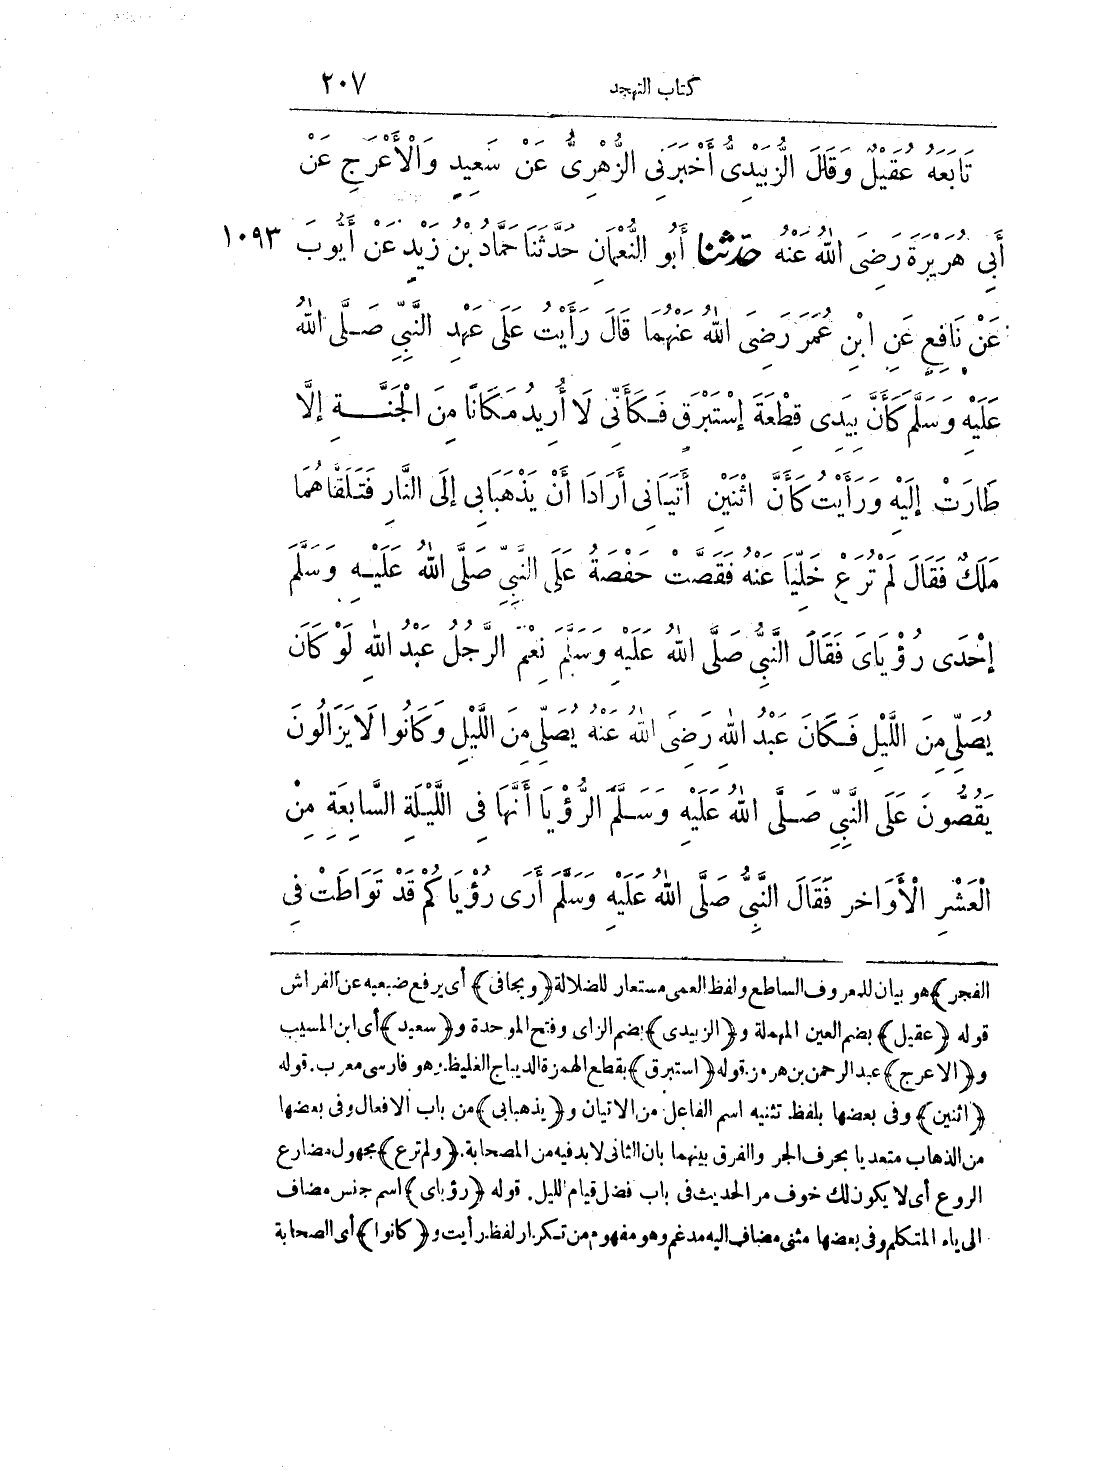 كتاب التهجد ٢٠٧
تَابَعَهُ عُقَيْلٌ وَقَالَ الزُّبَيْدِىُّ أَخْبَرَنِى الزُّهْرِىُّ عَنْ سَعِيدٍ وَالْأَعْرَجِ عَنْ
أَبِي هُرَيْرَةَ رَضِىَ اللّٰهُ عَنْهُ حَدّثنا أَبُو النُّعْمَانِ حَدَّثَنَا حَمَّادُ بْنُ زَيْدٍ عَنْ أَيُّوبَ ١٠٩٣
عَنْ نَافِعٍ عَنِ ابْنِ عُمَرَ رَضِىَ اللّٰهُ عَنْهُمَا قَالَ رَأَيْتُ عَلَى عَهْدِ النَّبِيِّ صَلَّى اللّٰهُ
عَلَيْهِ وَسَلَّمَ كَأَنَّ بِيَدِى قِطْعَةَ إِسْتَبْرَقٍ فَكَأَنِّى لَا أُرِيدُ مَكَانًا مِنَ الْجَنَّةِ إِلَّا
طَارَتْ إِلَيْهِ وَرَأَيْتُ كَأَنَّ اثْنَيْنِ أَتَيَانِى أَرَادَا أَنْ يَذْهَبَابِى إِلَى النَّارِ فَتَلَقَّاهُمَا
مَلَكٌ فَقَالَ لَمْ تُرَعْ خَلِّيَا عَنْهُ فَقَصَّتْ حَفْصَةُ عَلَى النَّبِيِّ صَلَّى اللّٰهُ عَلَيْهِ وَسَلَّمَ
إِحْدَى رُؤْيَاىَ فَقَالَ النَّبِيُّ صَلَّى اللّٰهُ عَلَيْهِ وَسَلَّمَ نِعْمَ الرَّجُلُ عَبْدُ اللّٰهِ لَوْ كَانَ
يُصَلِّي مِنَ اللَّيْلِ فَكَانَ عَبْدُ اللّٰهِ رَضِىَ اللّٰهُ عَنْهُ يُصَلِّي مِنَ اللَّيْلِ وَكَانُوا لَا يَزَالُونَ
يَقُصُّونَ عَلَى النَّبِيِّ صَلَّى اللّٰهُ عَلَيْهِ وَسَلَّمَ الرُّؤْيَا أَنَّهَا فِى اللَّيْلَةِ السَّابِعَةِ مِنَ
الْعَشْرِ الْأَوَاخِرِ فَقَالَ النَّبِيُّ صَلَّى اللّٰهُ عَلَيْهِ وَسَلَّمَ أَرَى رُؤْيَاكُمْ قَدْ تَوَاطَتْ فِى
الفجر﴾ هو بيان للمعروف الساطع ولفظ العمى مستعار للضلالة ﴿ويجافى﴾ أى يرفع ضبعيه عن الفراش
قوله ﴿عقيل﴾ بضم العين المهملة و﴿الزبيدى﴾ بضم الزاى وفتح الموحدة و﴿سعيد﴾ أى ابن المسيب
و﴿الاعرج﴾ عبد الرحمن بن هرمز. قوله ﴿استبرق﴾ بقطع الهمزة الديباج الغليظ وهو فارسى معرب. قوله
﴿اثنين﴾ وفى بعضها بلفظ تثنيه اسم الفاعل من الاتيان و﴿يذهبابى﴾ من باب الافعال وفى بعضها
من الذهاب متعديا بحرف الجر والفرق بينهما بان الثانى لا بد فيه من المصحابة. ﴿ولم ترع﴾ مجهول مضارع
الروع أى لا يكون لك خوف مر الحديث فى باب فضل قيام الليل. قوله ﴿رؤياى﴾ اسم جنس مضاف
الى ياء المتكلم وفى بعضها مثنى مضاف اليه مدغم وهو مفهوم من تكرار لفظ رأيت و﴿كانوا﴾ أى الصحابة